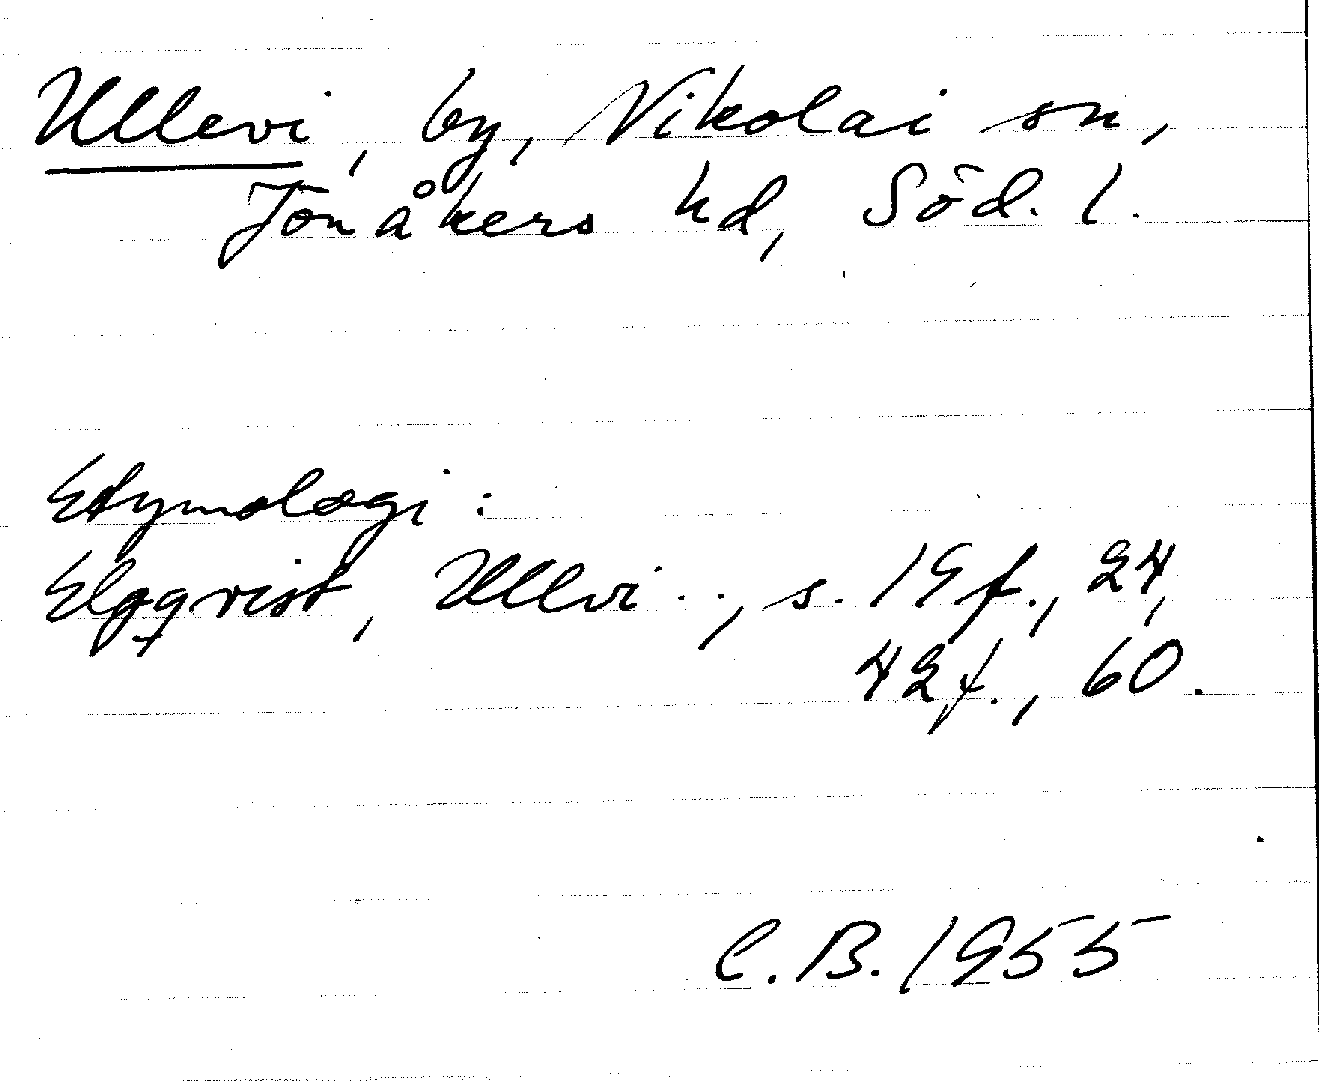 Ullevi, by, Nikolai sn,
Jönåkers hd, Söd. l.
Etymologi:
Elgqvist, Ullvi . ., s. 19 f., 24,
42 f., 60.
C. B. 1955